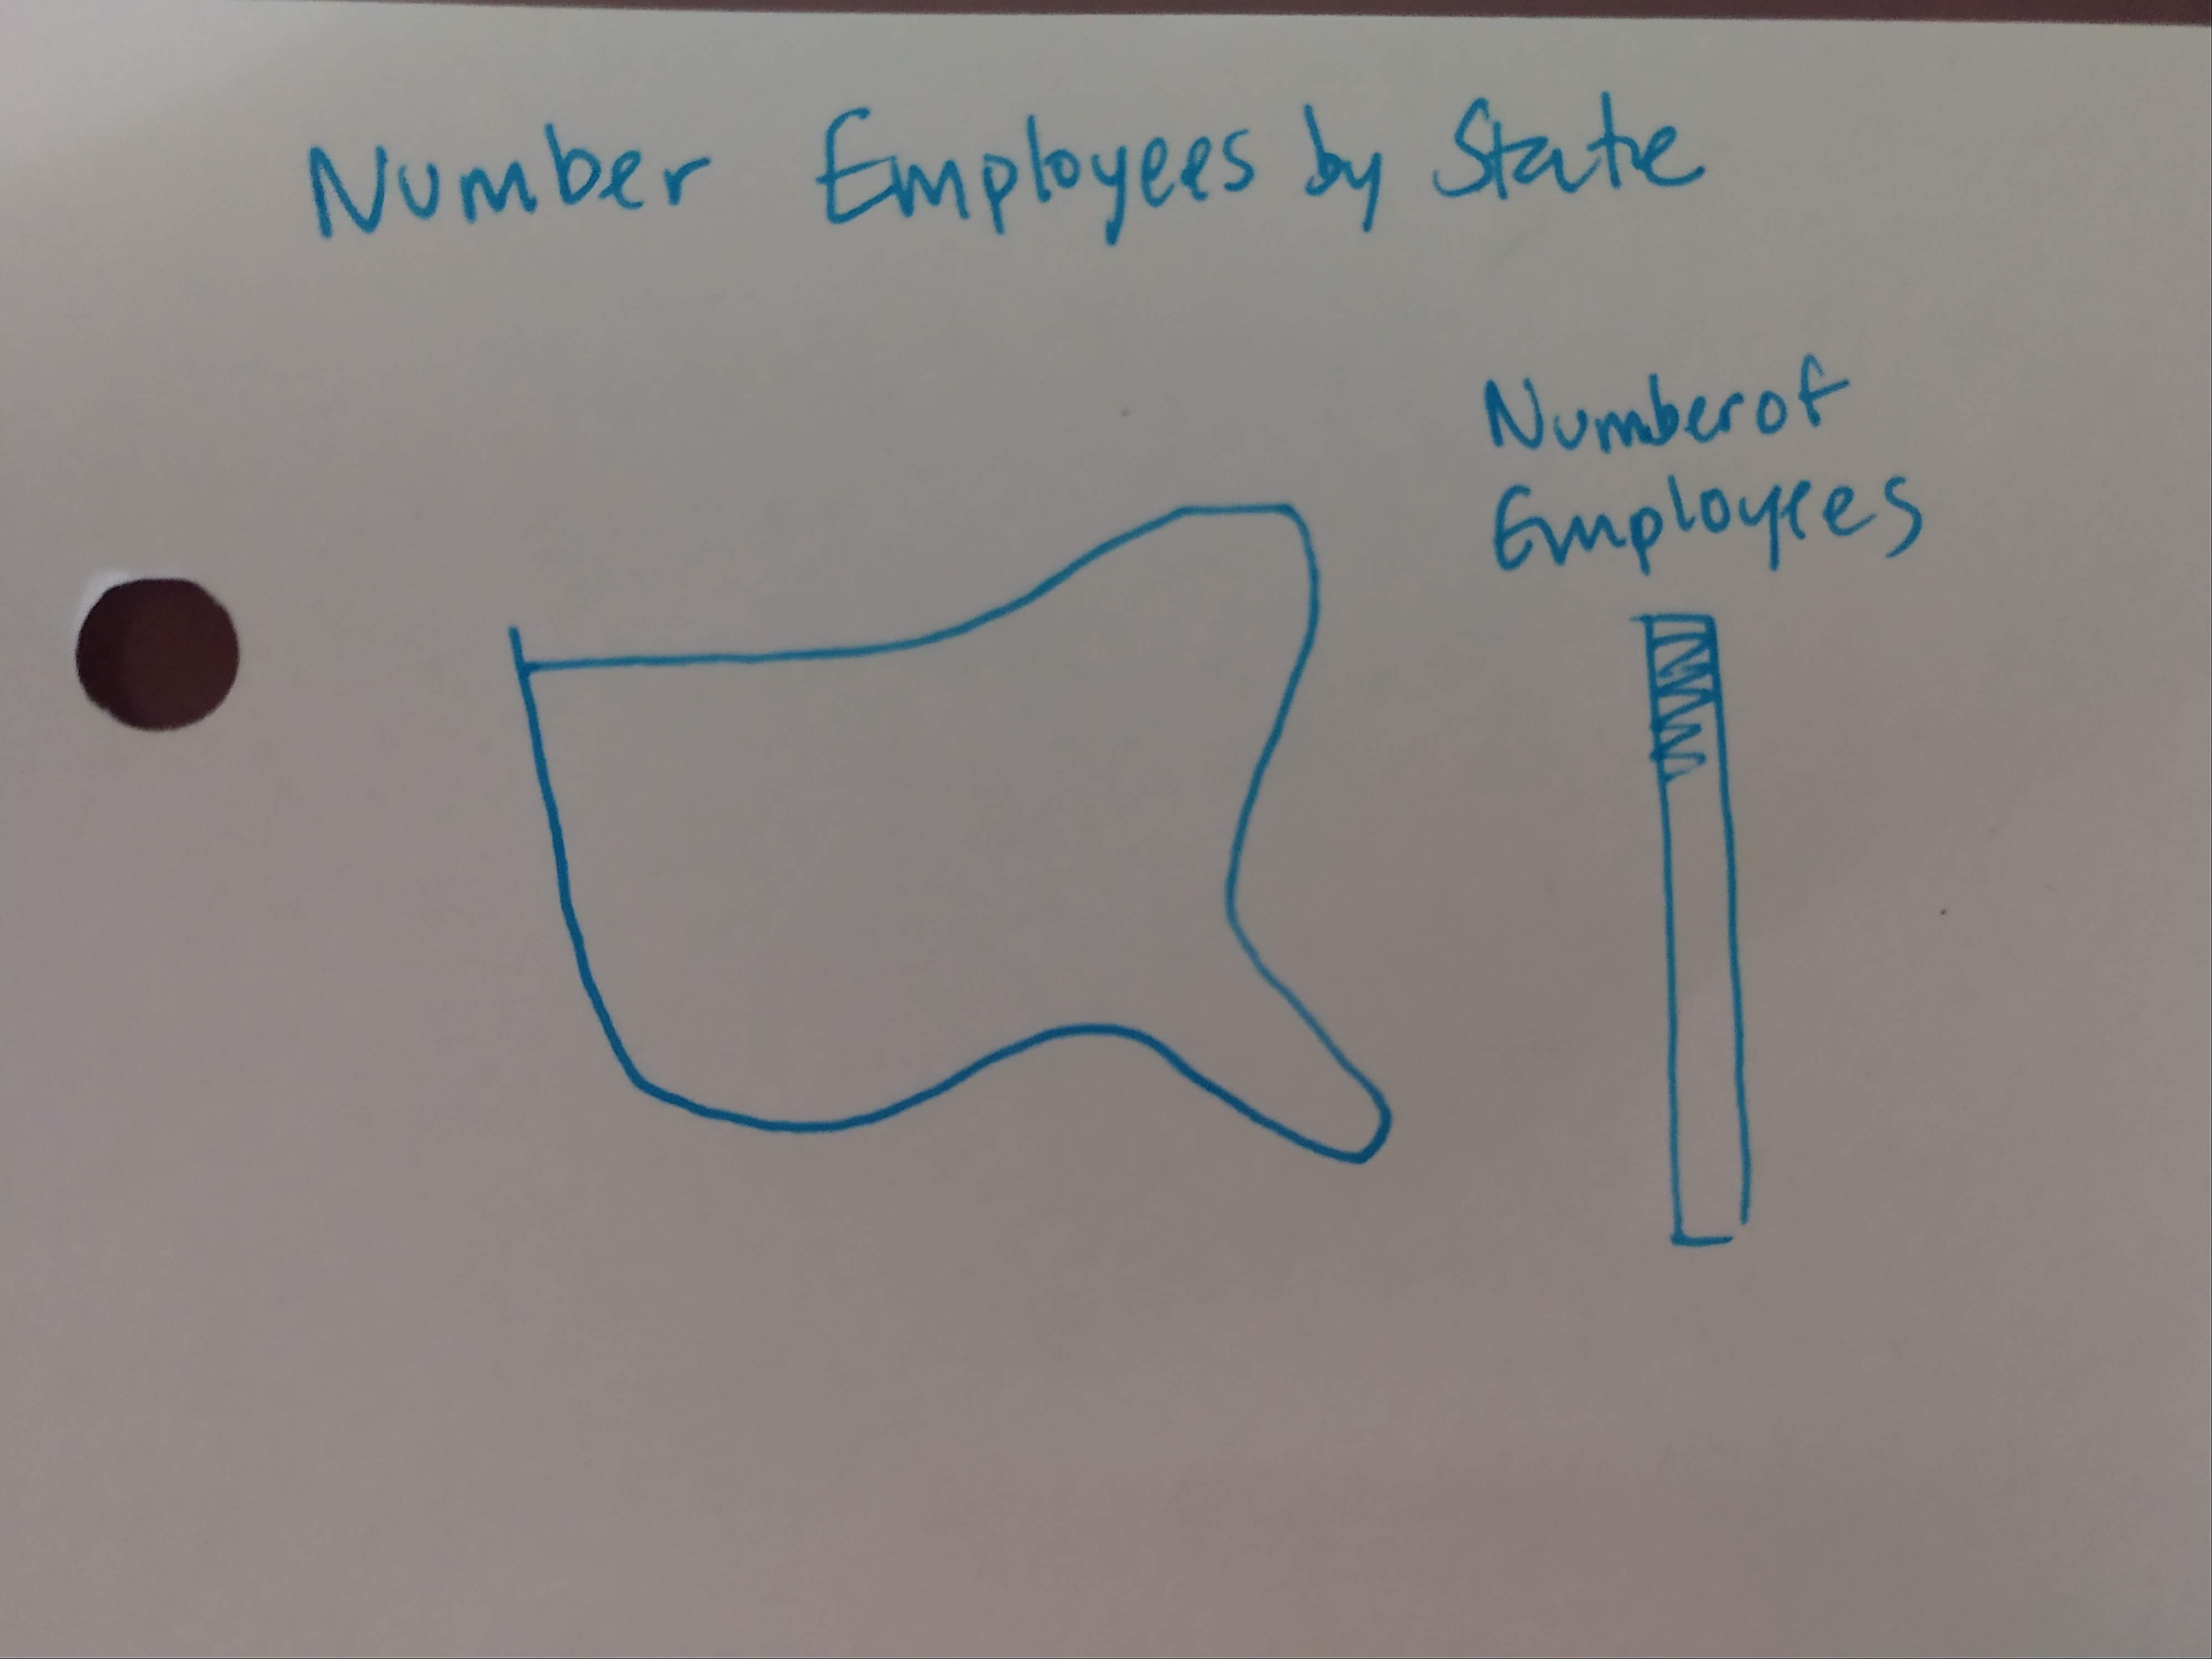 Number Employees by State
Number of
Employees